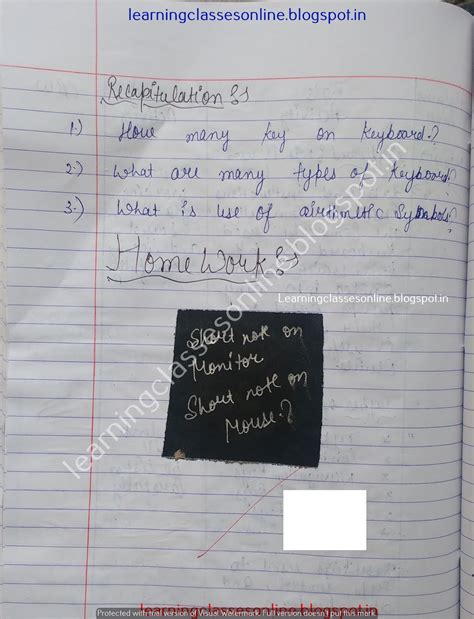 learningclassesonline.blogspot.in
Recapitulation :-
1.) How many key on keyboard.?
2.) What are many types of keyboard?
3.) What is use of airthmetic Symbols.?
learningclassesonline.blogspot.in
Home Work :-
Learningclassesonline.blogspot.in
Short note on
Monitor
Short note on
Mouse.?
learningclassesonline.blogspot.in
Protected with trial version of Visual Watermark. Full version doesn't put this mark.